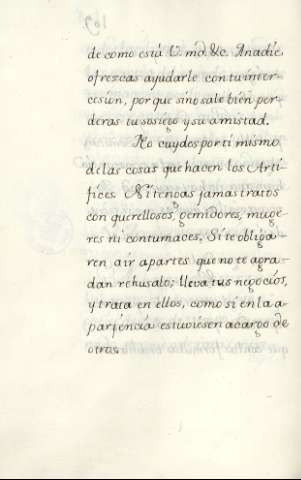 de como está V. md. &c. A nadie
ofrezcas ayudarle con tu inter-
cesion, porque sino sale bien per-
deras tu sosiego y su amistad.
No cuydes por ti mismo
de las cosas que hacen los Arti-
fices. Ni tengas jamas tratos
con querellosos, gemidores, muge-
res ni contumaces. Si te obliga-
ren a ir a partes que no te agra-
dan rehusalo; lleva tus negocios,
y trata en ellos, como si en la a-
pariencia estuviesen a cargo de
otros.